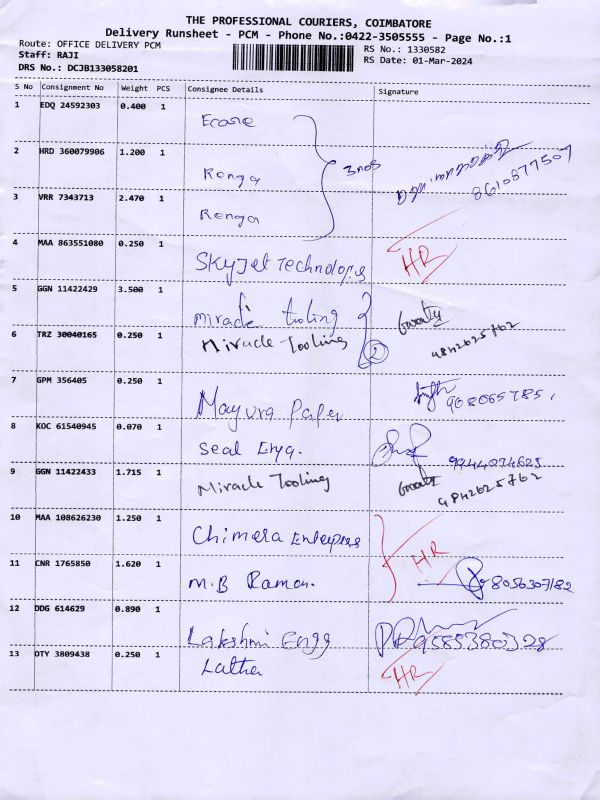 THE PROFESSIONAL COURIERS, COIMBATORE
Delivery Runsheet - PCM - Phone No.:0422-3505555 - Page No.:1
Route: OFFICE DELIVERY PCM RS No.: 1330582
Staff: RAJI RS Date: 01-Mar-2024
DRS No.: DCJB133058201
S No Consignment No Weight PCS Consignee Details Signature
1 EDQ 24592303 0.400 1
Ecare
2 HRD 360079906 1.200 1
Renga 3nos 8610877507
3 VRR 7343713 2.470 1
Renga
4 MAA 863551080 0.250 1
Skyjet Technologes HR
5 GGN 11422429 3.500 1
miracle tooling
6 TRZ 30040165 0.250 1
Miracle Tooling 2 9842625762
7 GPM 356405 0.250 1
Mayura Paper
8 KOC 61540945 0.070 1
Seal Eng. 9944074625
9 GGN 11422433 1.715 1
Miracle Tooling 9842625762
10 MAA 108626230 1.250 1
Chimera Enterpress HR
11 CNR 1765850 1.620 1
M.B Raman. 8056307182
12 DDG 614629 0.890 1
Lakshmi Engg 9585380328
13 OTY 3809438 0.250 1
Latha HR